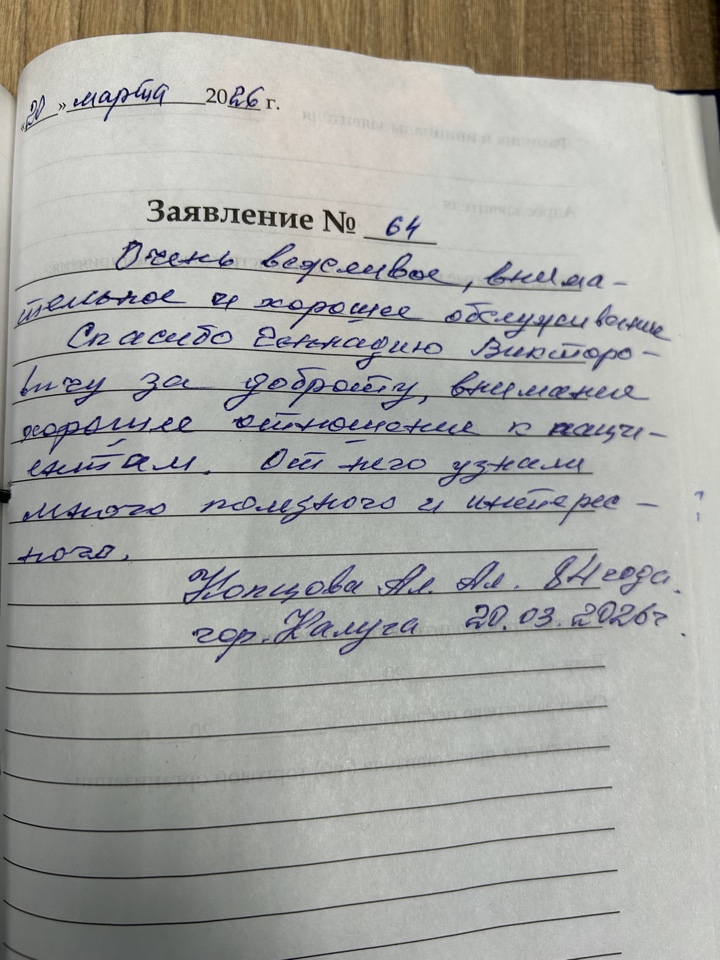 «20» марта 2026 г.
Заявление № 64
Очень вежливое, внима-
тельное и хорошее обслуживание
Спасибо Геннадию Викторо-
вичу за доброту, внимание
хорошее отношение к паци-
ентам. От него узнали
много полезного и интерес-
ного.
Копцова Ал. Ал. 84 года.
гор. Калуга 20.03.2026г.